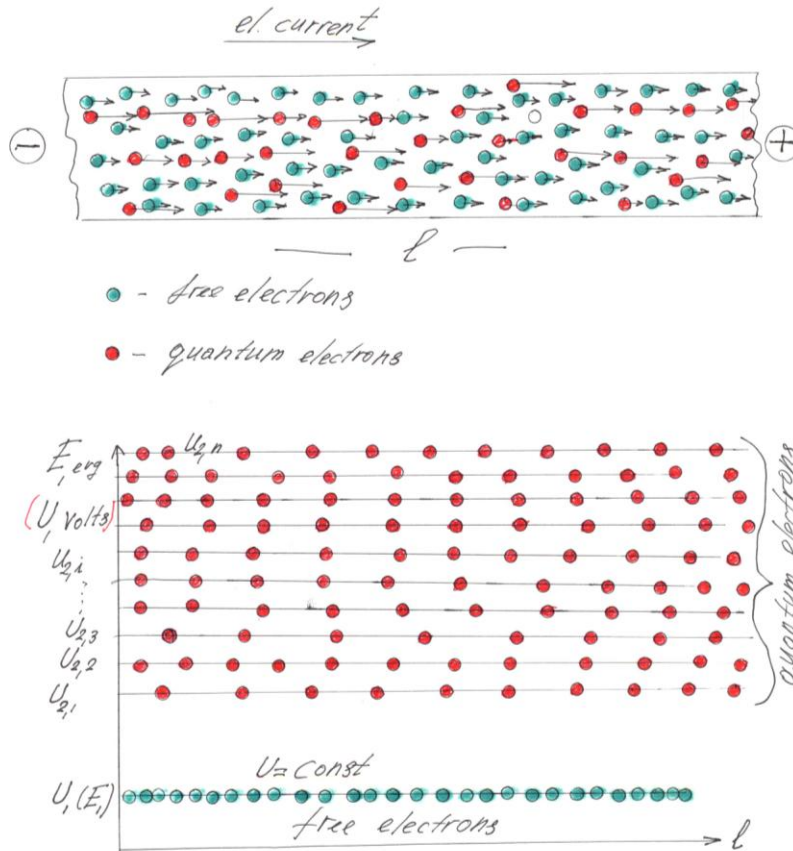 el. current
−
+
l
- free electrons
- quantum electrons
E, erg
U2,n
(U, volts)
U2,i
⋮
U2,3
U2,2
U2,1
quantum electrons
U1 (E1)
U=const
free electrons
l